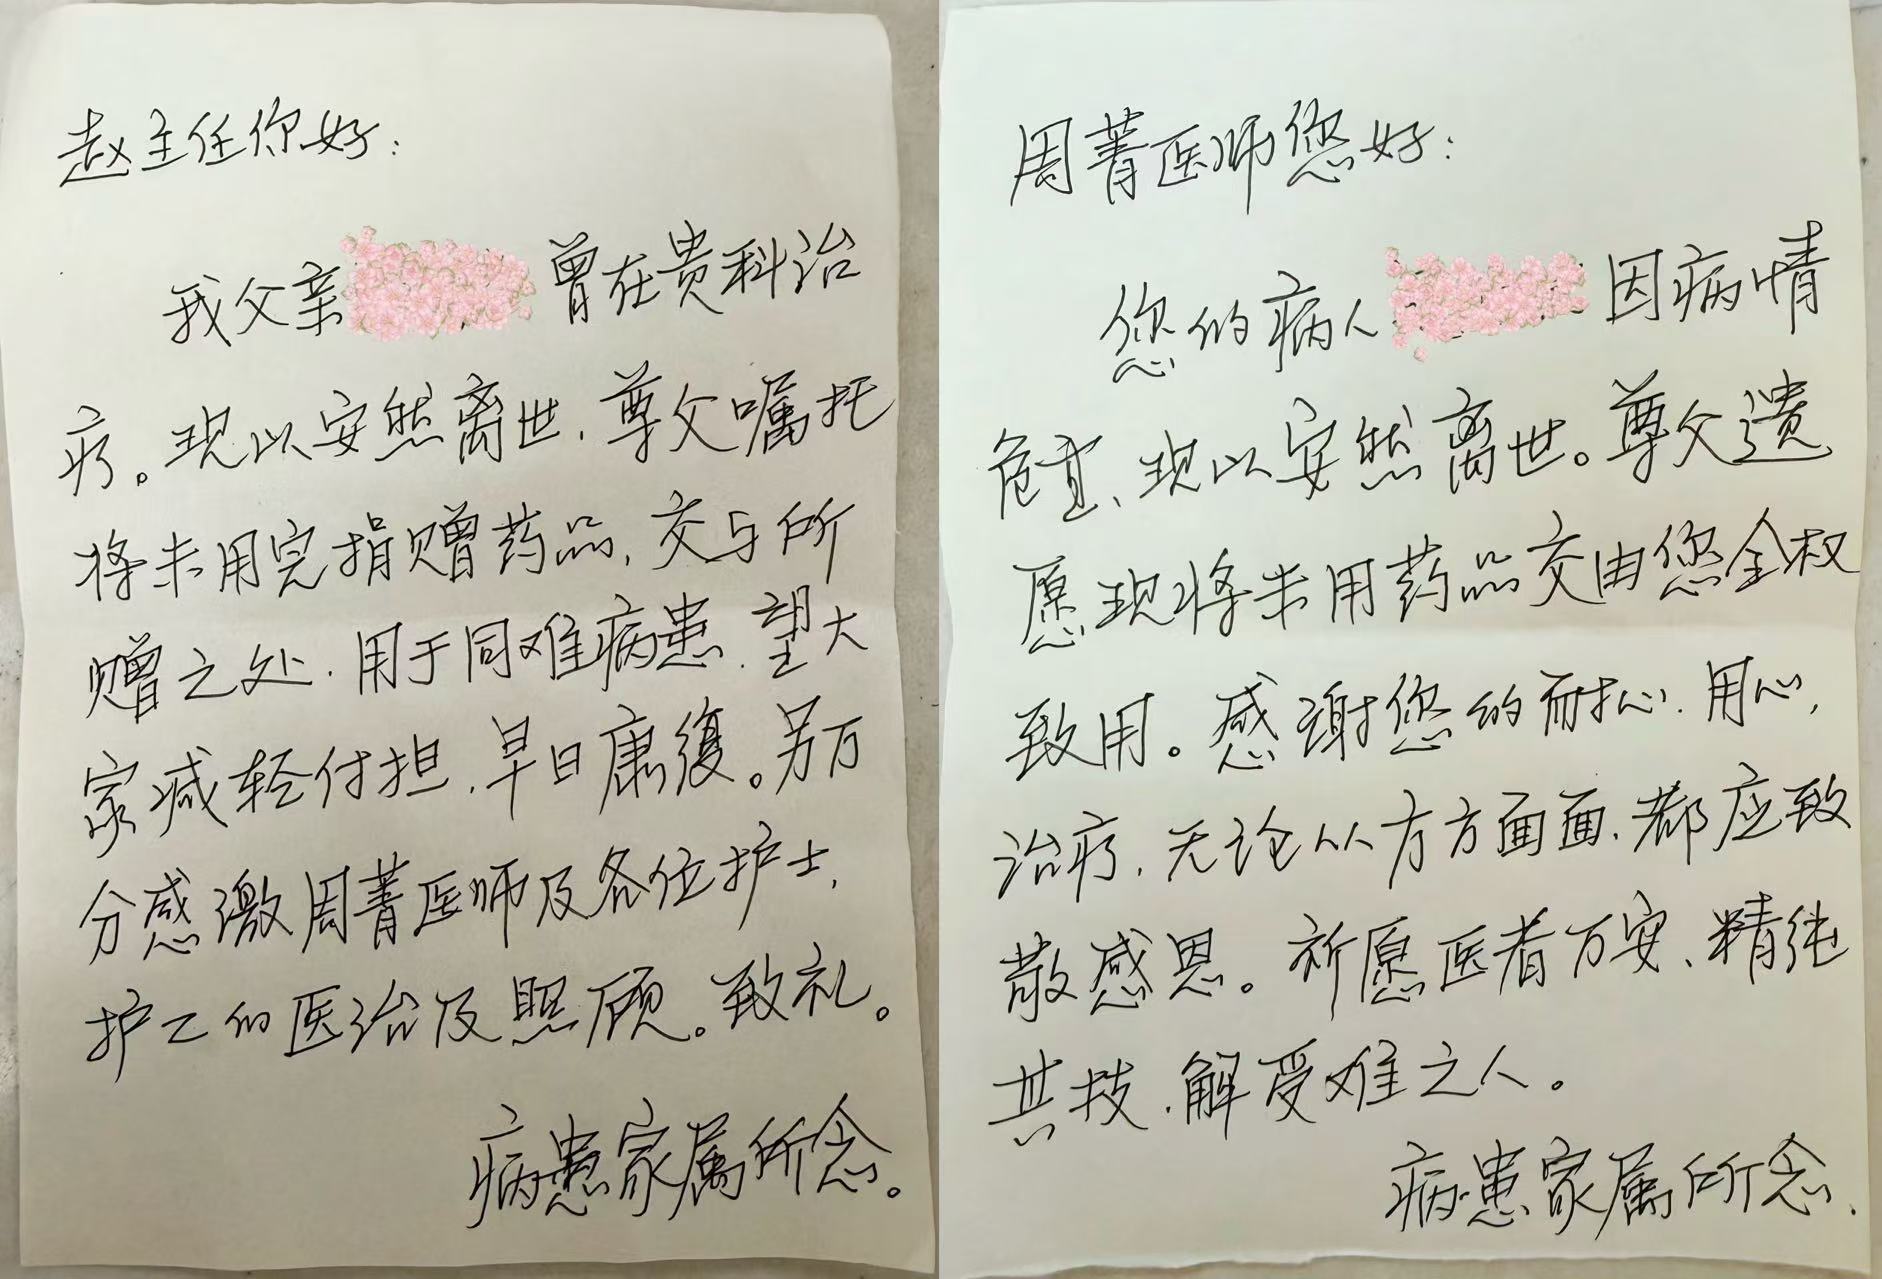 赵主任你好:
我父亲 曾在贵科治
疗。现以安然离世.尊父嘱托
将未用完捐赠药品,交与所
赠之处.用于同难病患.望大
家减轻付担.早日康復。另万
分感激周菁医师及各位护士,
护工的医治及照顾。致礼。
病患家属所念。
周菁医师您好:
您的病人 因病情
危重、现以安然离世。尊父遗
愿现将未用药品交由您全权
致用。感谢您的耐心.用心,
治疗.无论从方方面面.都应致
敬感恩。祈愿医者万安、精纯
其技.解受难之人。
病患家属所念.